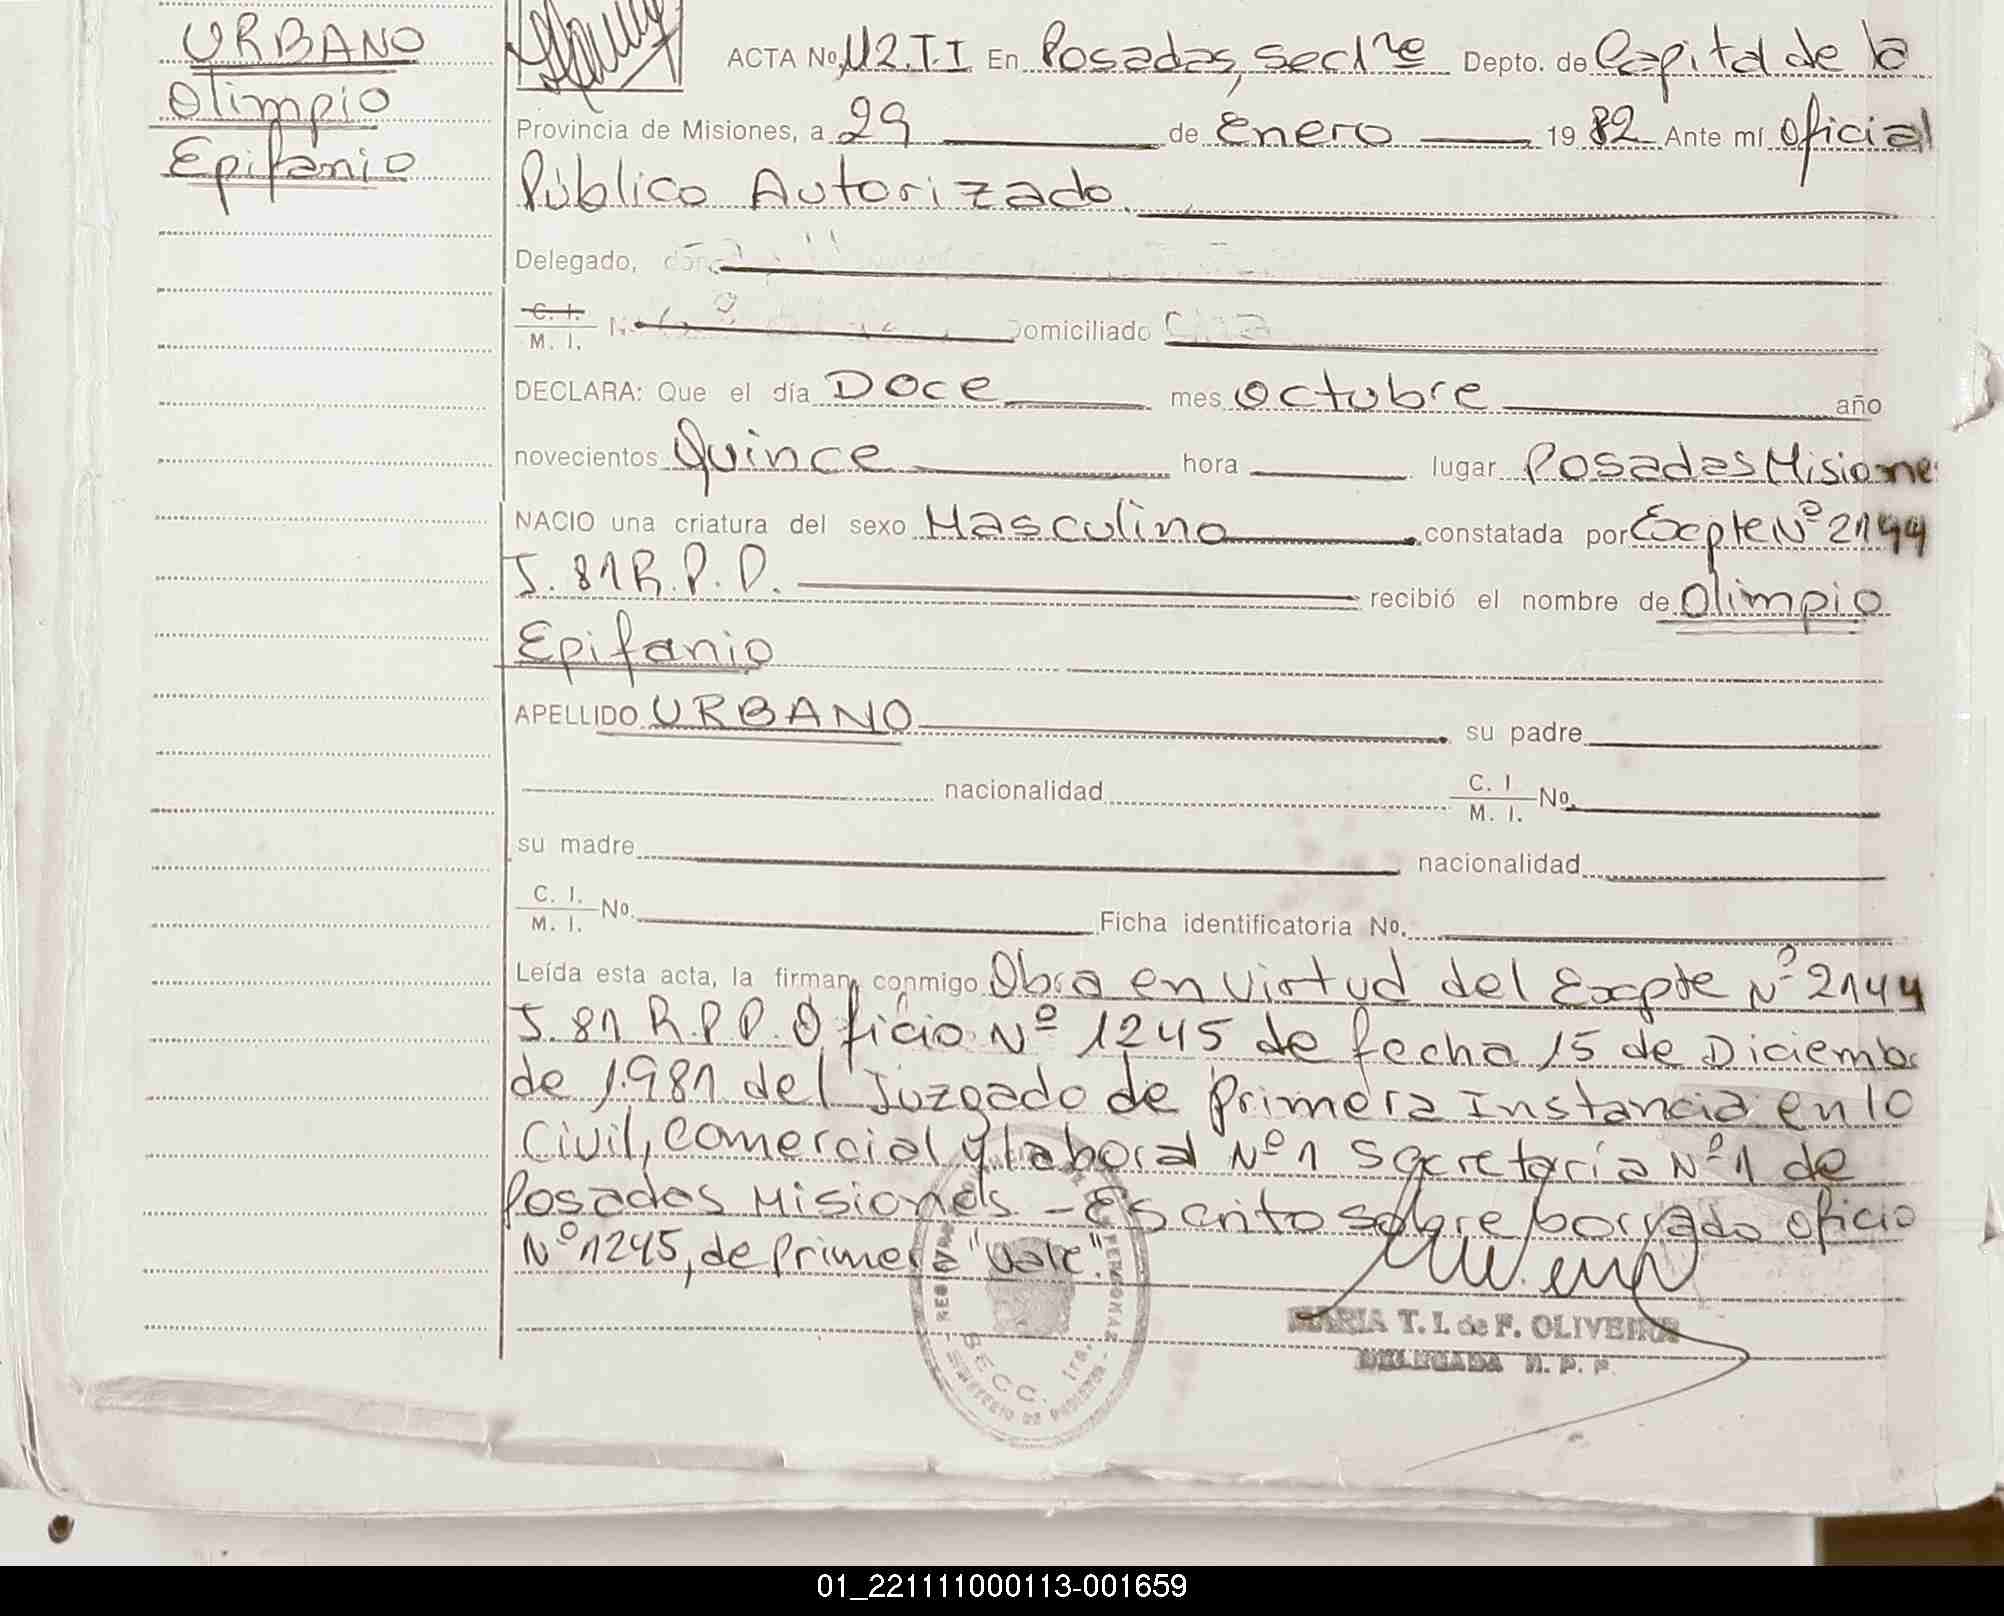 URBANO
Olimpio
Epifanio
ACTA No. 112.T.I En Posadas, Secc 1ra Depto. de Capital de la
Provincia de Misiones, a 29 de Enero 1982 Ante mí Oficial
Público Autorizado.
Delegado,
C. I. / M. I. Domiciliado
DECLARA: Que el día Doce mes Octubre año
novecientos Quince hora lugar Posadas Misiones
NACIO una criatura del sexo Masculino constatada por Excpte Nº 2144
J. 81 R.P.P. recibió el nombre de Olimpio
Epifanio
APELLIDO URBANO su padre
nacionalidad C. I / M. I. No.
su madre nacionalidad
C. I. / M. I. No. Ficha identificatoria No.
Leída esta acta, la firman conmigo Obra en virtud del Excpte Nº 2144
J. 81 R.P.P. Oficio Nº 1245 de fecha 15 de Diciemb
de 1.981 del Juzgado de Primera Instancia en lo
Civil, Comercial y Laboral Nº 1 Secretaría Nº 1 de
Posadas Misiones - Escrito sobre borrado oficio
Nº 1245, de Primera "Vale".
MARIA T. I. de F. OLIVEIRA
DELEGADA R. P. P.
SECC. 1ra.
01_221111000113-001659